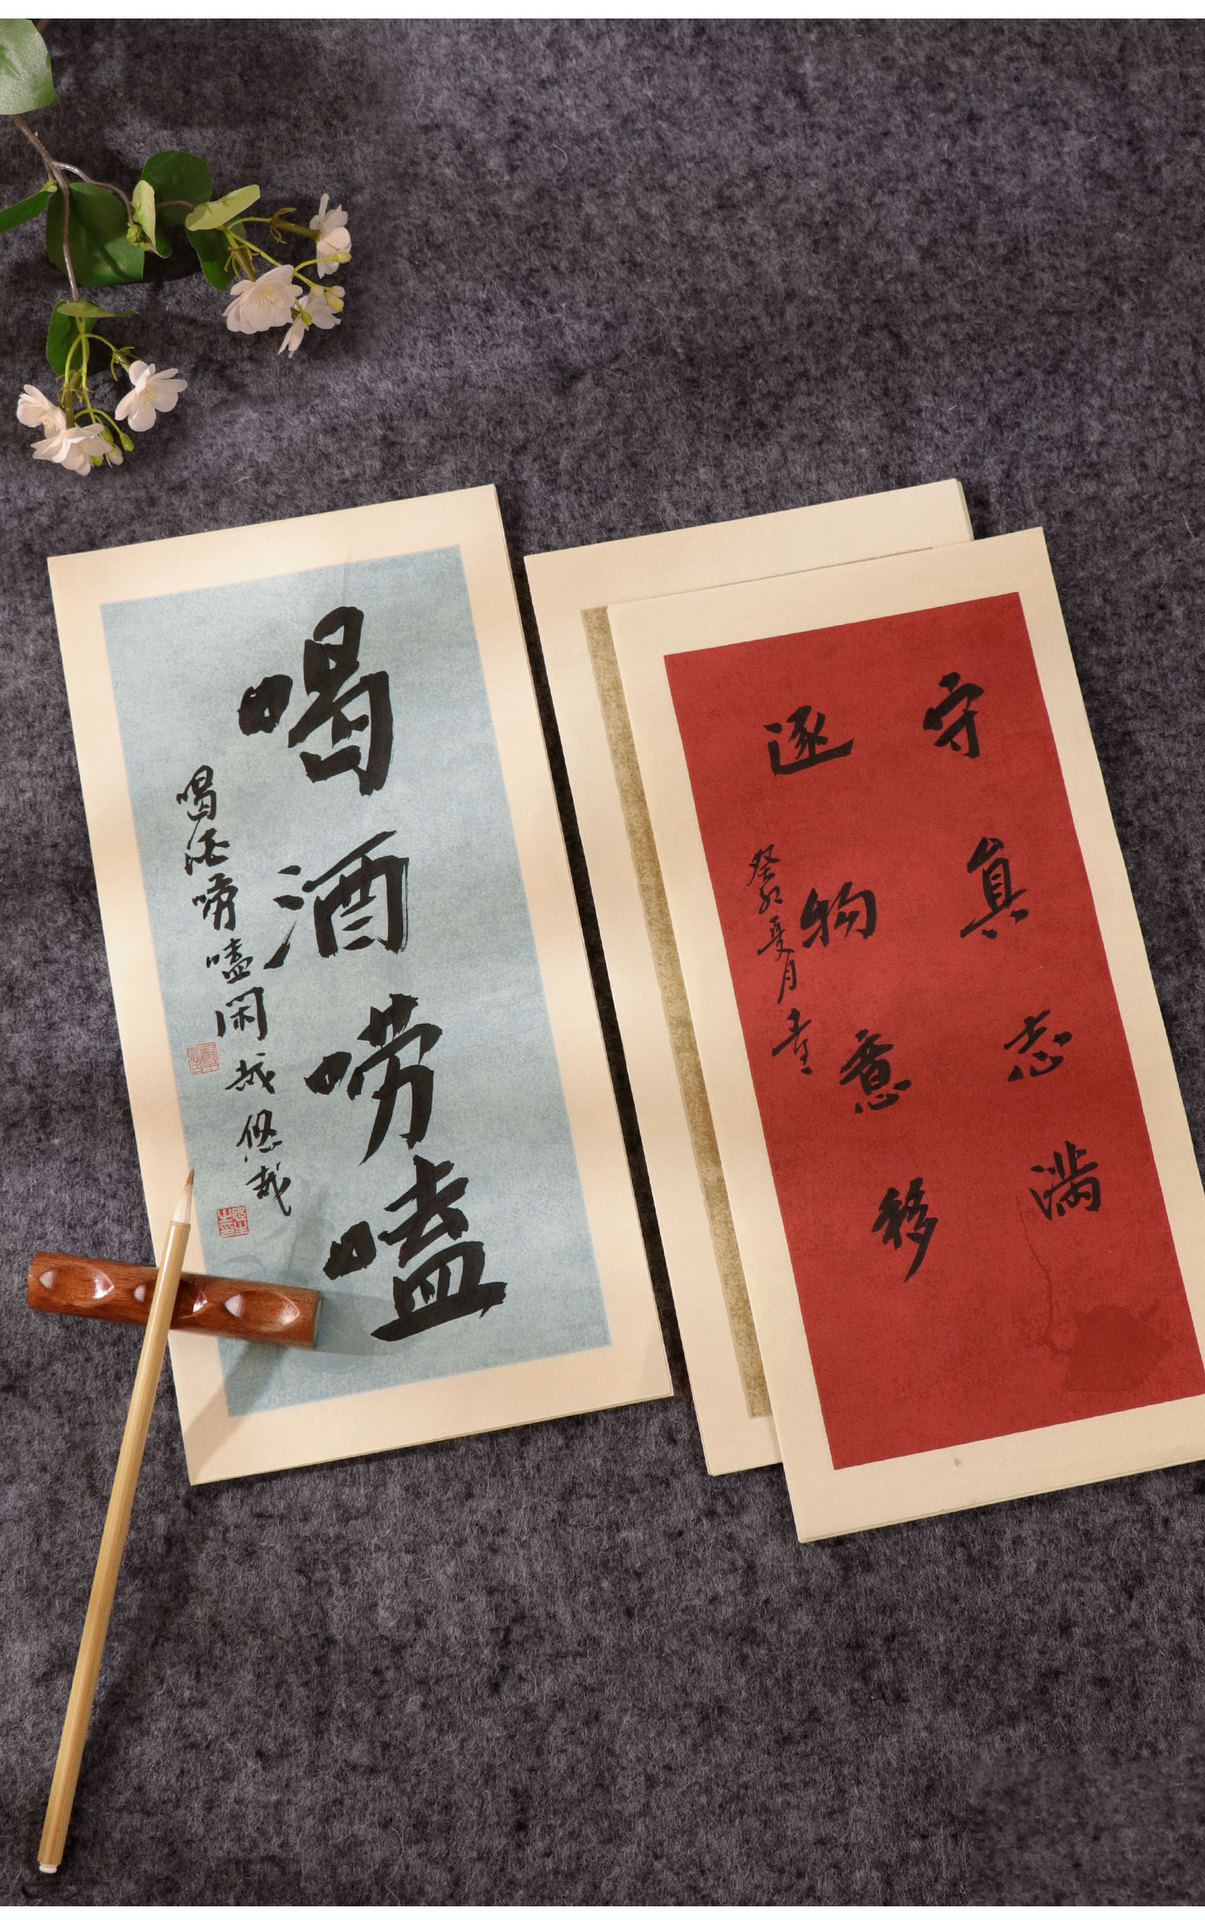 喝酒唠嗑
喝酒唠嗑闲哉悠哉
守真志满
逐物意移
癸卯夏月